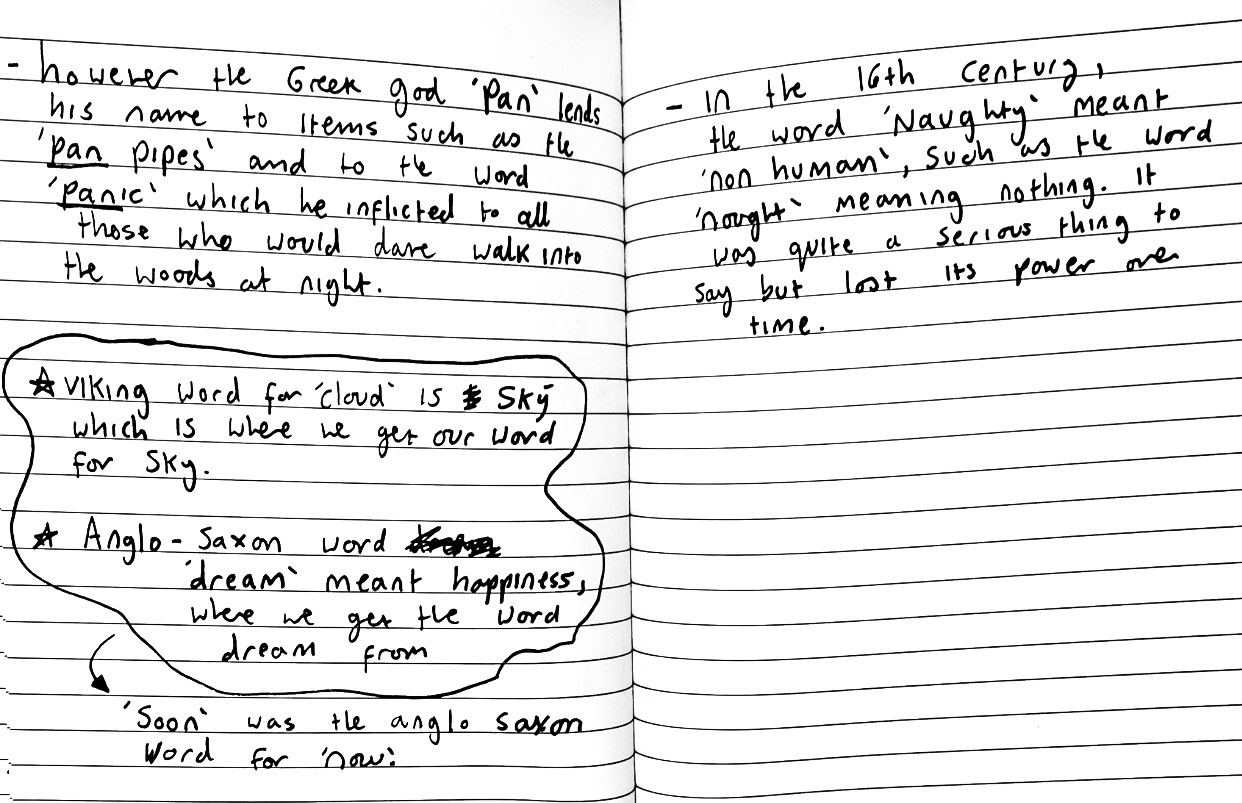 - however the Greek god 'Pan' lends
his name to items such as the
'pan pipes' and to the word
'panic' which he inflicted to all
those who would dare walk into
the woods at night.
☆ Viking word for 'cloud' is Ský
which is where we get our word
for Sky.
☆ Anglo-Saxon word
'dream' meant happiness,
where we get the word
dream from
'Soon' was the anglo saxon
word for 'now'.
- In the 16th Century,
the word 'Naughty' meant
'non human', such as the word
'nought' meaning nothing. It
was quite a serious thing to
say but lost its power over
time.